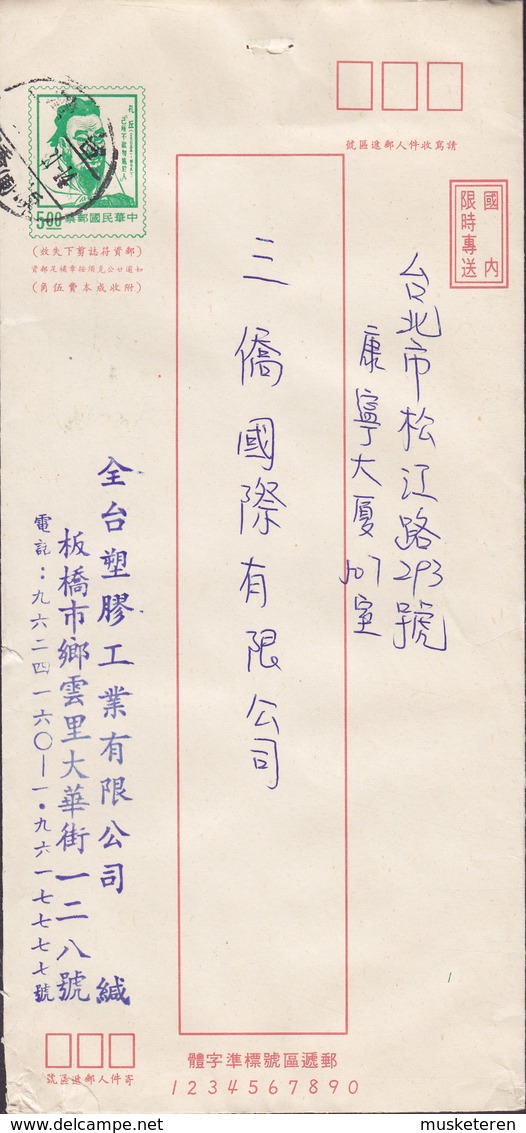 請寫收件人郵遞區號
國內
限時專送
台北市松江路293號
康寧大廈107室
三僑國際有限公司
孔丘
己所不欲勿施於人
5.00
中華民國郵票
(郵資符誌剪下失效)
(附收成本費伍角)
全台塑膠工業有限公司 緘
板橋市鄉雲里大華街一二八號
電話：九六二四一六〇—一•九六一七七七七號
寄件人郵遞區號
郵遞區號標準字體
1234567890
musketeren
www.delcampe.net